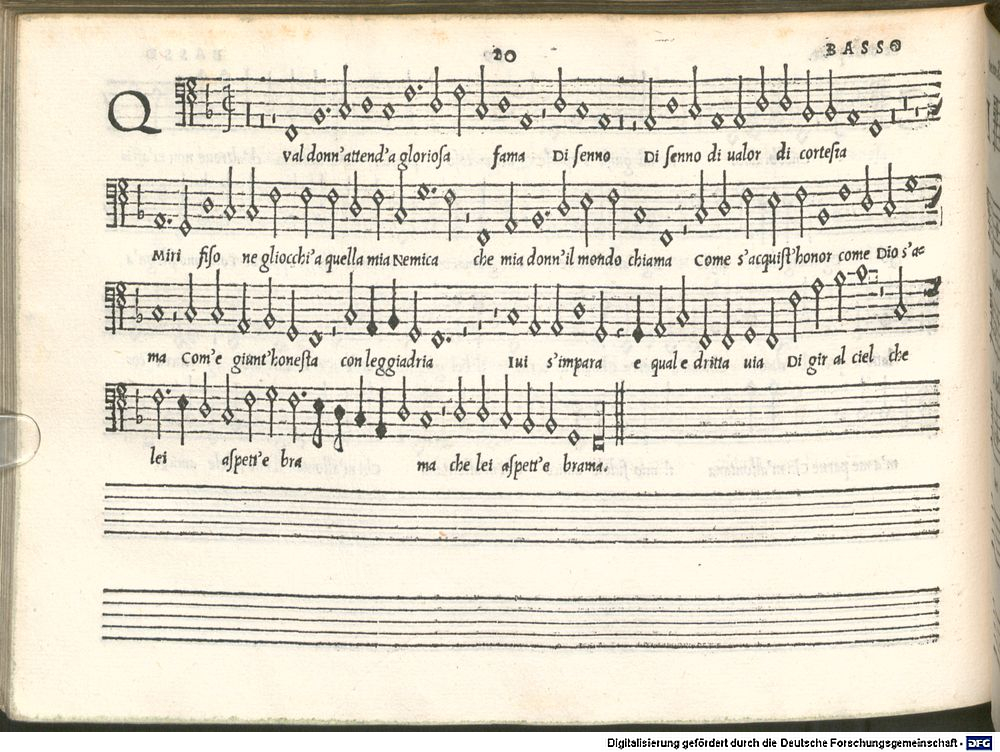 20
BASSO
Q
val donn'attend'a gloriosa fama Di senno Di senno di ualor di cortesia
Miri fiso ne gliocchi'a quella mia Nemica che mia donn'il mondo chiama Come s'acquist'honor come Dio s'a-
ma Com'e giunt'honesta con leggiadria Iui s'impara e qual e dritta uia Di gir al ciel che
lei aspett'e bra ma che lei aspett'e brama.
Digitalisierung gefördert durch die Deutsche Forschungsgemeinschaft - DFG